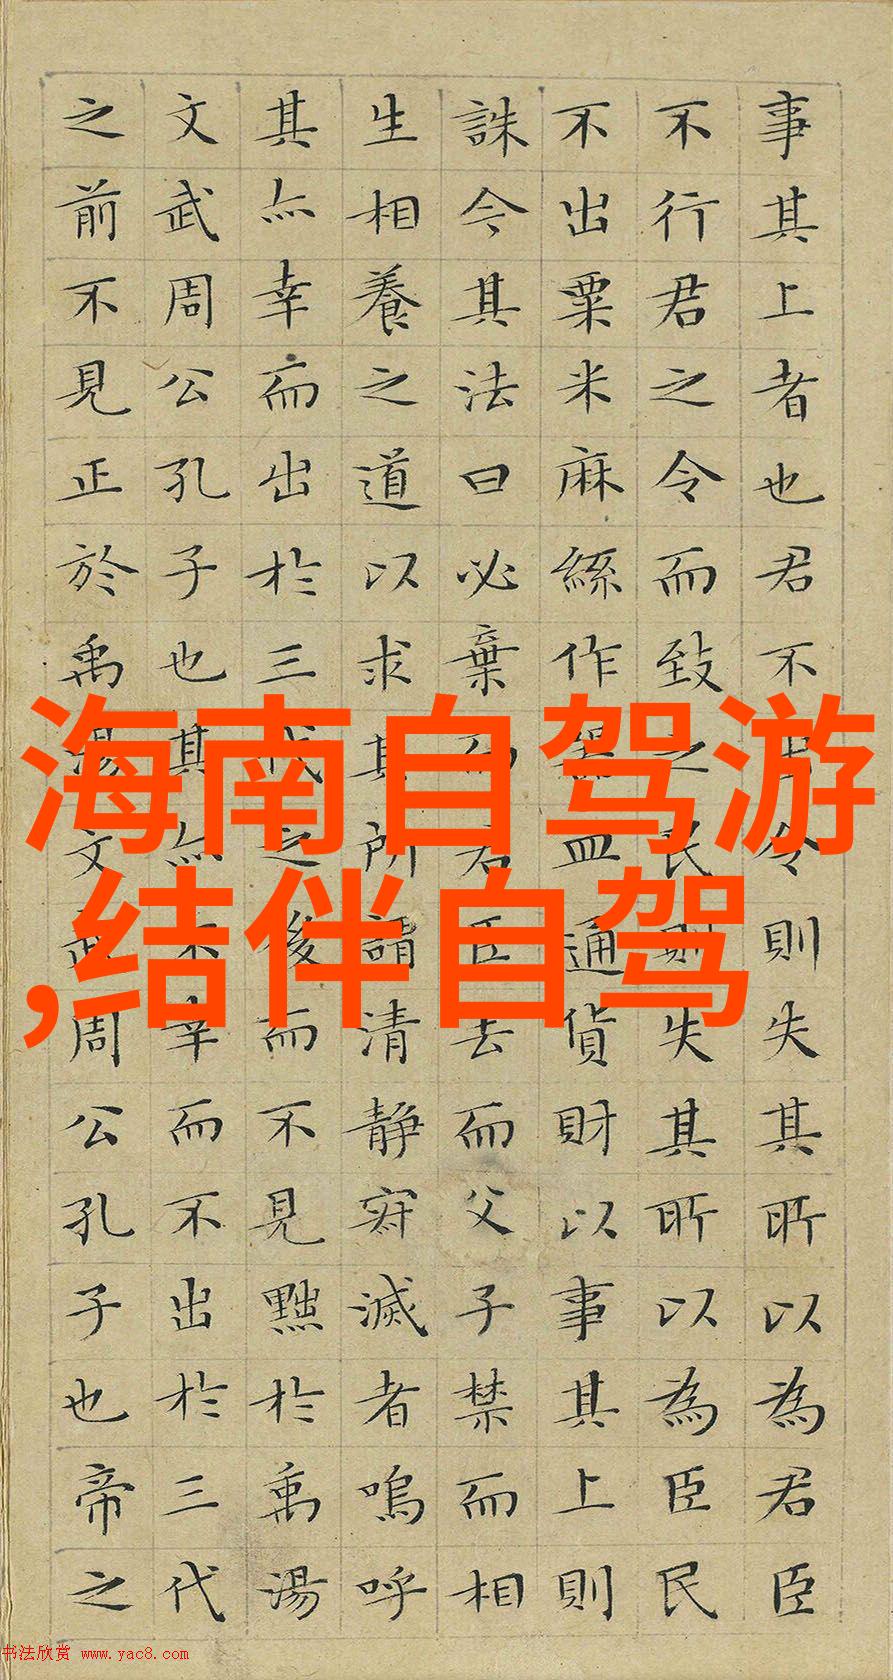 事其上者也君不出令則失其所以為君臣
不行君之令而致之民則失其所以為臣民
不出粟米麻絲作器皿通貨財以事其上則
誅今其法曰必棄而君臣去而父子禁而相
生相養之道以求其所謂清静寂滅者嗚呼
其亦幸而出於三代之後而不見黜於禹湯
文武周公孔子也其亦不幸而不出於三代
之前不見正於禹湯文武周公孔子也帝之
海南自驾游
,结伴自驾
书法欣赏 www.yac8.com